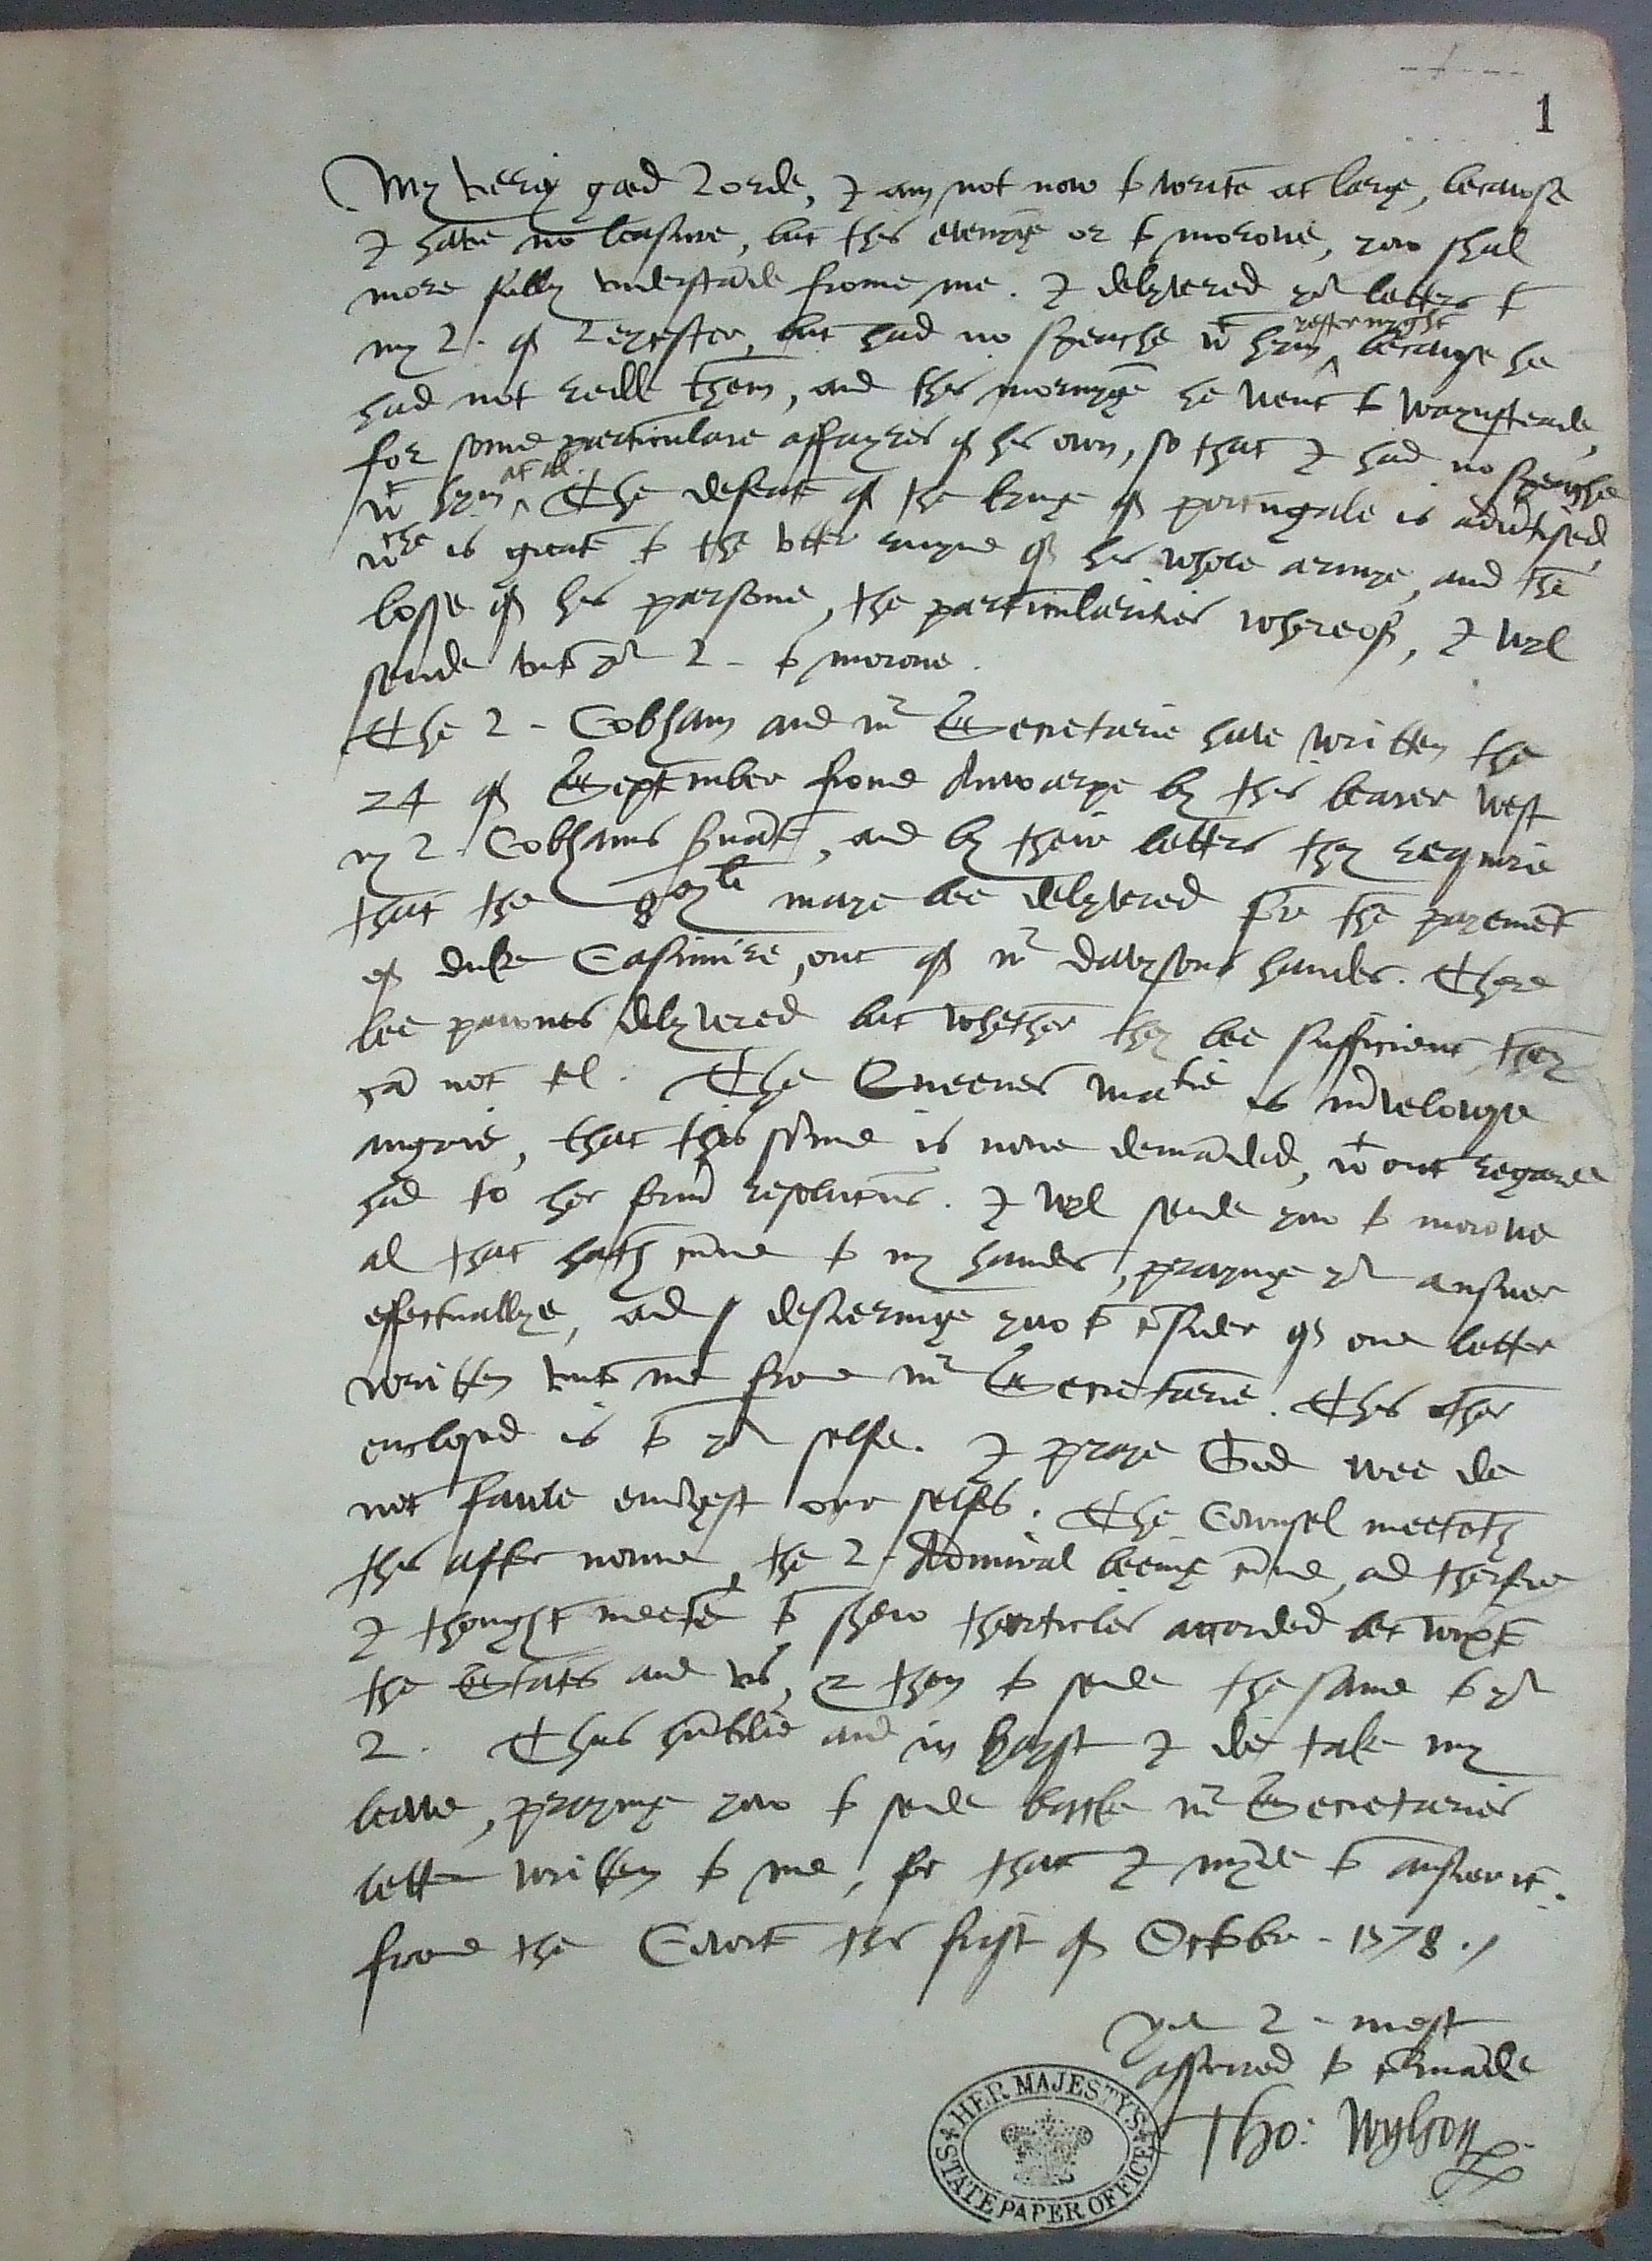 1
My verie good Lorde, I am not now to write at large, because
I have no leasure, but this evenyge or to morowe, yow shal
more fully understāde frome me. I delyvered yor letters to
my L. of Leycester, but had no speache wt hym yesternyght because he
had not redde them, and this mornyge he went to Waynsteade,
for some particulare affayres of his own, so that I had no speache
wt hym at al. The defeate of the kynge of portugale is advertised,
wche is greate to the utter ruyne of his whole armye, and the
losse of his parsone, the particularities whereof, I wyl
sende unto yor L. to morowe.
The L. Cobham and mr Secretarie have written the
24 of September frome Anwarpe by this bearer West
my L. Cobhams srvāte, and by their letters they requirre
that the maye bee delyvered for the paymēt
of duke Casimire, out of mr davysons handes. There
bee pawnes delyvered but whether they bee sufficient they
cā not tel. The Queenes matie is mrvelouse
angrie, that this sōme is nowe demāded, wt out regarde
had to her formr resolucōns. I wyl sende yow to morowe
al that hath cōme to my handes, prayinge yor answer
effectuallye, and desieringe yow to cōsider of one letter
written unto me frome mr Secretarie. This other
enclosed is to yor selfe. I praye God wee do
not faule emōgest our selfes. The Counsel meeteth
this after noone, the L. Admiral beeing cōme, ad therfore
I thought meete to shew tharticles accorded betwixt
the Estats and us, & then to sende the same to yor
L. Thus hūblie and in hayst I do take my
leave, prayinge yow to sende backe mr Secretaries
letter written to me, for that I mynde to answer it.
frome the Cowrt this first of October - 1578 ./
yor L - most
assured to cōmāde
Tho: Wylson
HER MAJESTY'S STATE PAPER OFFICE